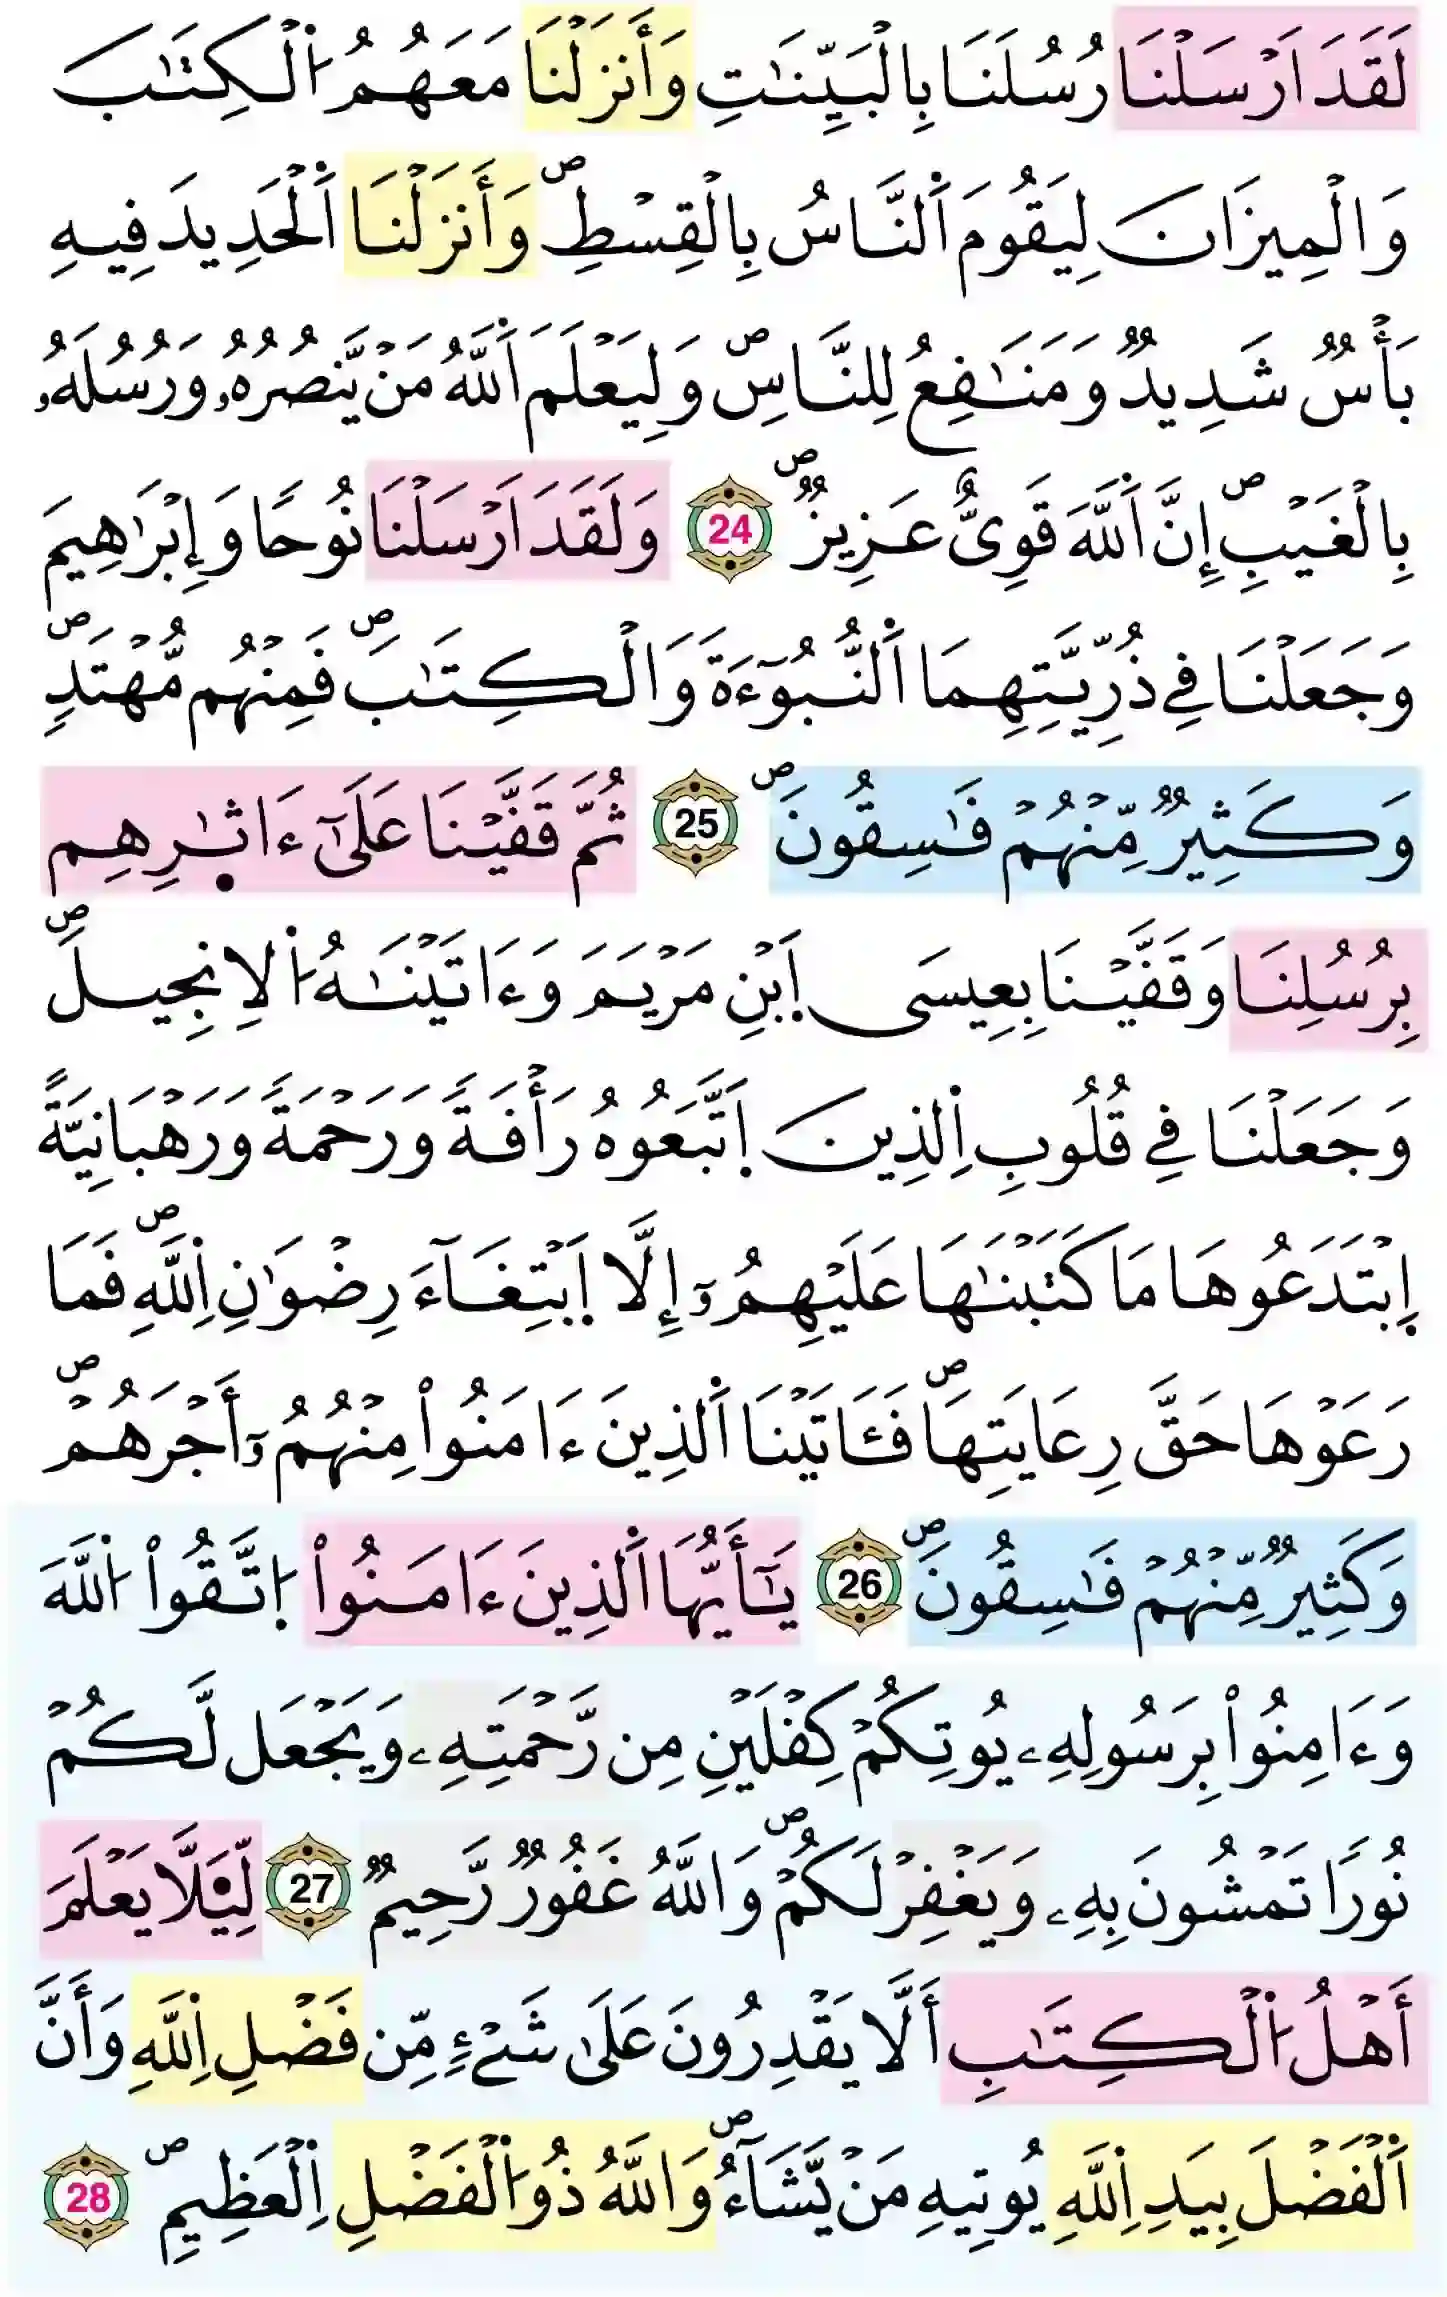 لَقَدَ اَرْسَلْنَا رُسُلَنَا بِالْبَيِّنَٰتِ وَأَنزَلْنَا مَعَهُمُ اُ۬لْكِتَٰبَ
وَالْمِيزَانَ لِيَقُومَ اَ۬لنَّاسُ بِالْقِسْطِۖ وَأَنزَلْنَا اَ۬لْحَدِيدَ فِيهِ
بَأْسٞ شَدِيدٞ وَمَنَٰفِعُ لِلنَّاسِۖ وَلِيَعْلَمَ اَ۬للَّهُ مَنْ يَّنصُرُهُۥ وَرُسُلَهُۥ
بِالْغَيْبِۖ إِنَّ اَ۬للَّهَ قَوِيٌّ عَزِيزٞۖ 24 وَلَقَدَ اَرْسَلْنَا نُوحٗا وَإِبْرَٰهِيمَ
وَجَعَلْنَا فِے ذُرِّيَّتِهِمَا اَ۬لنُّبُوٓءَةَ وَالْكِتَٰبَۖ فَمِنْهُم مُّهْتَدٖۖ
وَكَثِيرٞ مِّنْهُمْ فَٰسِقُونَۖ 25 ثُمَّ قَفَّيْنَا عَلَىٰٓ ءَاثٰ۪رِهِم
بِرُسُلِنَا وَقَفَّيْنَا بِعِيسَى اَ۪بْنِ مَرْيَمَ وَءَاتَيْنَٰهُ اُ۬لِانجِيلَۖ
وَجَعَلْنَا فِے قُلُوبِ اِ۬لذِينَ اَ۪تَّبَعُوهُ رَأْفَةٗ وَرَحْمَةٗ وَرَهْبَانِيَّةً
اِ۪بْتَدَعُوهَا مَا كَتَبْنَٰهَا عَلَيْهِمُۥٓ إِلَّا اَ۪بْتِغَآءَ رِضْوَٰنِ اِ۬للَّهِۖ فَمَا
رَعَوْهَا حَقَّ رِعَايَتِهَاۖ فَـَٔاتَيْنَا اَ۬لذِينَ ءَامَنُواْ مِنْهُمُۥٓ أَجْرَهُمْۖ
وَكَثِيرٞ مِّنْهُمْ فَٰسِقُونَۖ 26 يَٰٓأَيُّهَا اَ۬لذِينَ ءَامَنُواْ اُ۪تَّقُواْ اُ۬للَّهَ
وَءَامِنُواْ بِرَسُولِهِۦ يُوتِكُمْ كِفْلَيْنِ مِن رَّحْمَتِهِۦ وَيَجْعَل لَّكُمْ
نُورٗا تَمْشُونَ بِهِۦ وَيَغْفِرْ لَكُمْۖ وَاللَّهُ غَفُورٞ رَّحِيمٞ 27 لِّيَ۬لَّا يَعْلَمَ
أَهْلُ اُ۬لْكِتَٰبِ أَلَّا يَقْدِرُونَ عَلَىٰ شَےْءٖ مِّن فَضْلِ اِ۬للَّهِ وَأَنَّ
اَ۬لْفَضْلَ بِيَدِ اِ۬للَّهِ يُوتِيهِ مَنْ يَّشَآءُۖ وَاللَّهُ ذُو اُ۬لْفَضْلِ اِ۬لْعَظِيمِۖ 28